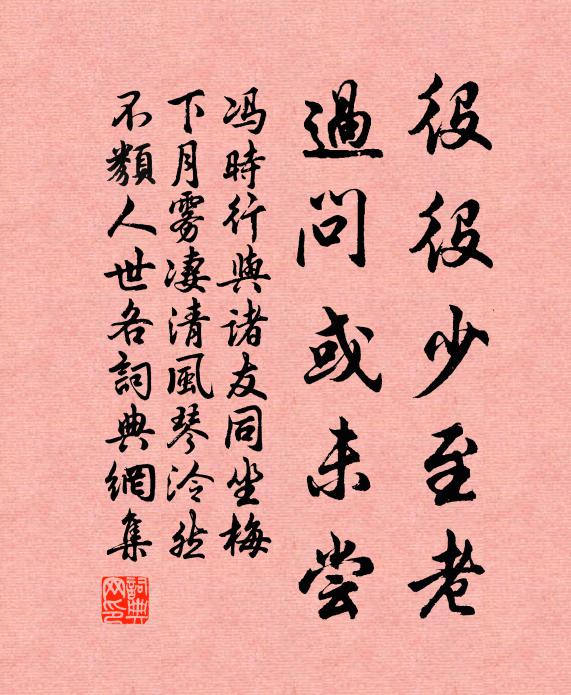 役役少至老
過問或未嘗
馮時行與諸友同坐梅
下月霧凄清風琴泠然
不類人世各詞典網集
詞典